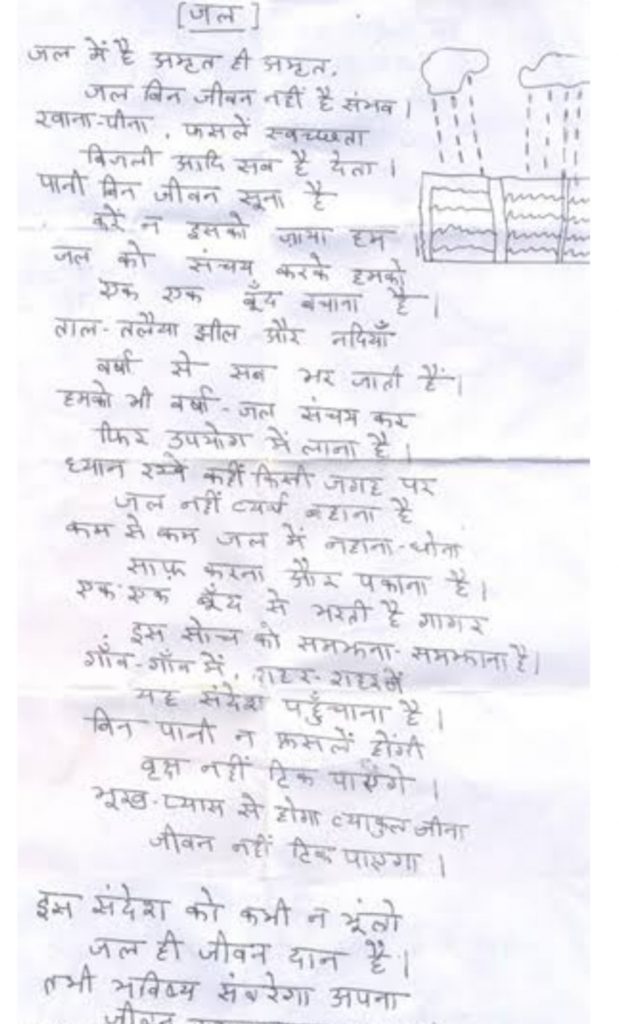 [जल]
जल में है अमृत ही अमृत,
जल बिन जीवन नहीं है संभव।
खाना-पीना, फसलें स्वच्छता
बिजली आदि सब है देता।
पानी बिन जीवन सूना है
करें न इसको ज़ाया हम
जल को संचय करके हमको
एक एक बूँद बचाना है।
ताल-तलैया झील और नदियाँ
वर्षा से सब भर जाती हैं।
हमको भी वर्षा-जल संचय कर
फिर उपयोग में लाना है।
ध्यान रखें कहीं किसी जगह पर
जल नहीं व्यर्थ बहाना है
कम से कम जल में नहाना-धोना
साफ़ करना और पकाना है।
एक-एक बूँद से भरती है गागर
इस सोच को समझना-समझाना है।
गाँव-गाँव में, शहर-शहर में
यह संदेश पहुँचाना है।
बिन पानी न फ़सलें होंगी
वृक्ष नहीं टिक पाएंगे।
भूख-प्यास से होगा व्याकुल जीना
जीवन नहीं टिक पाएगा।
इस संदेश को कभी न भूलो
जल ही जीवन दान है।
तभी भविष्य संवरेगा अपना
जीवन